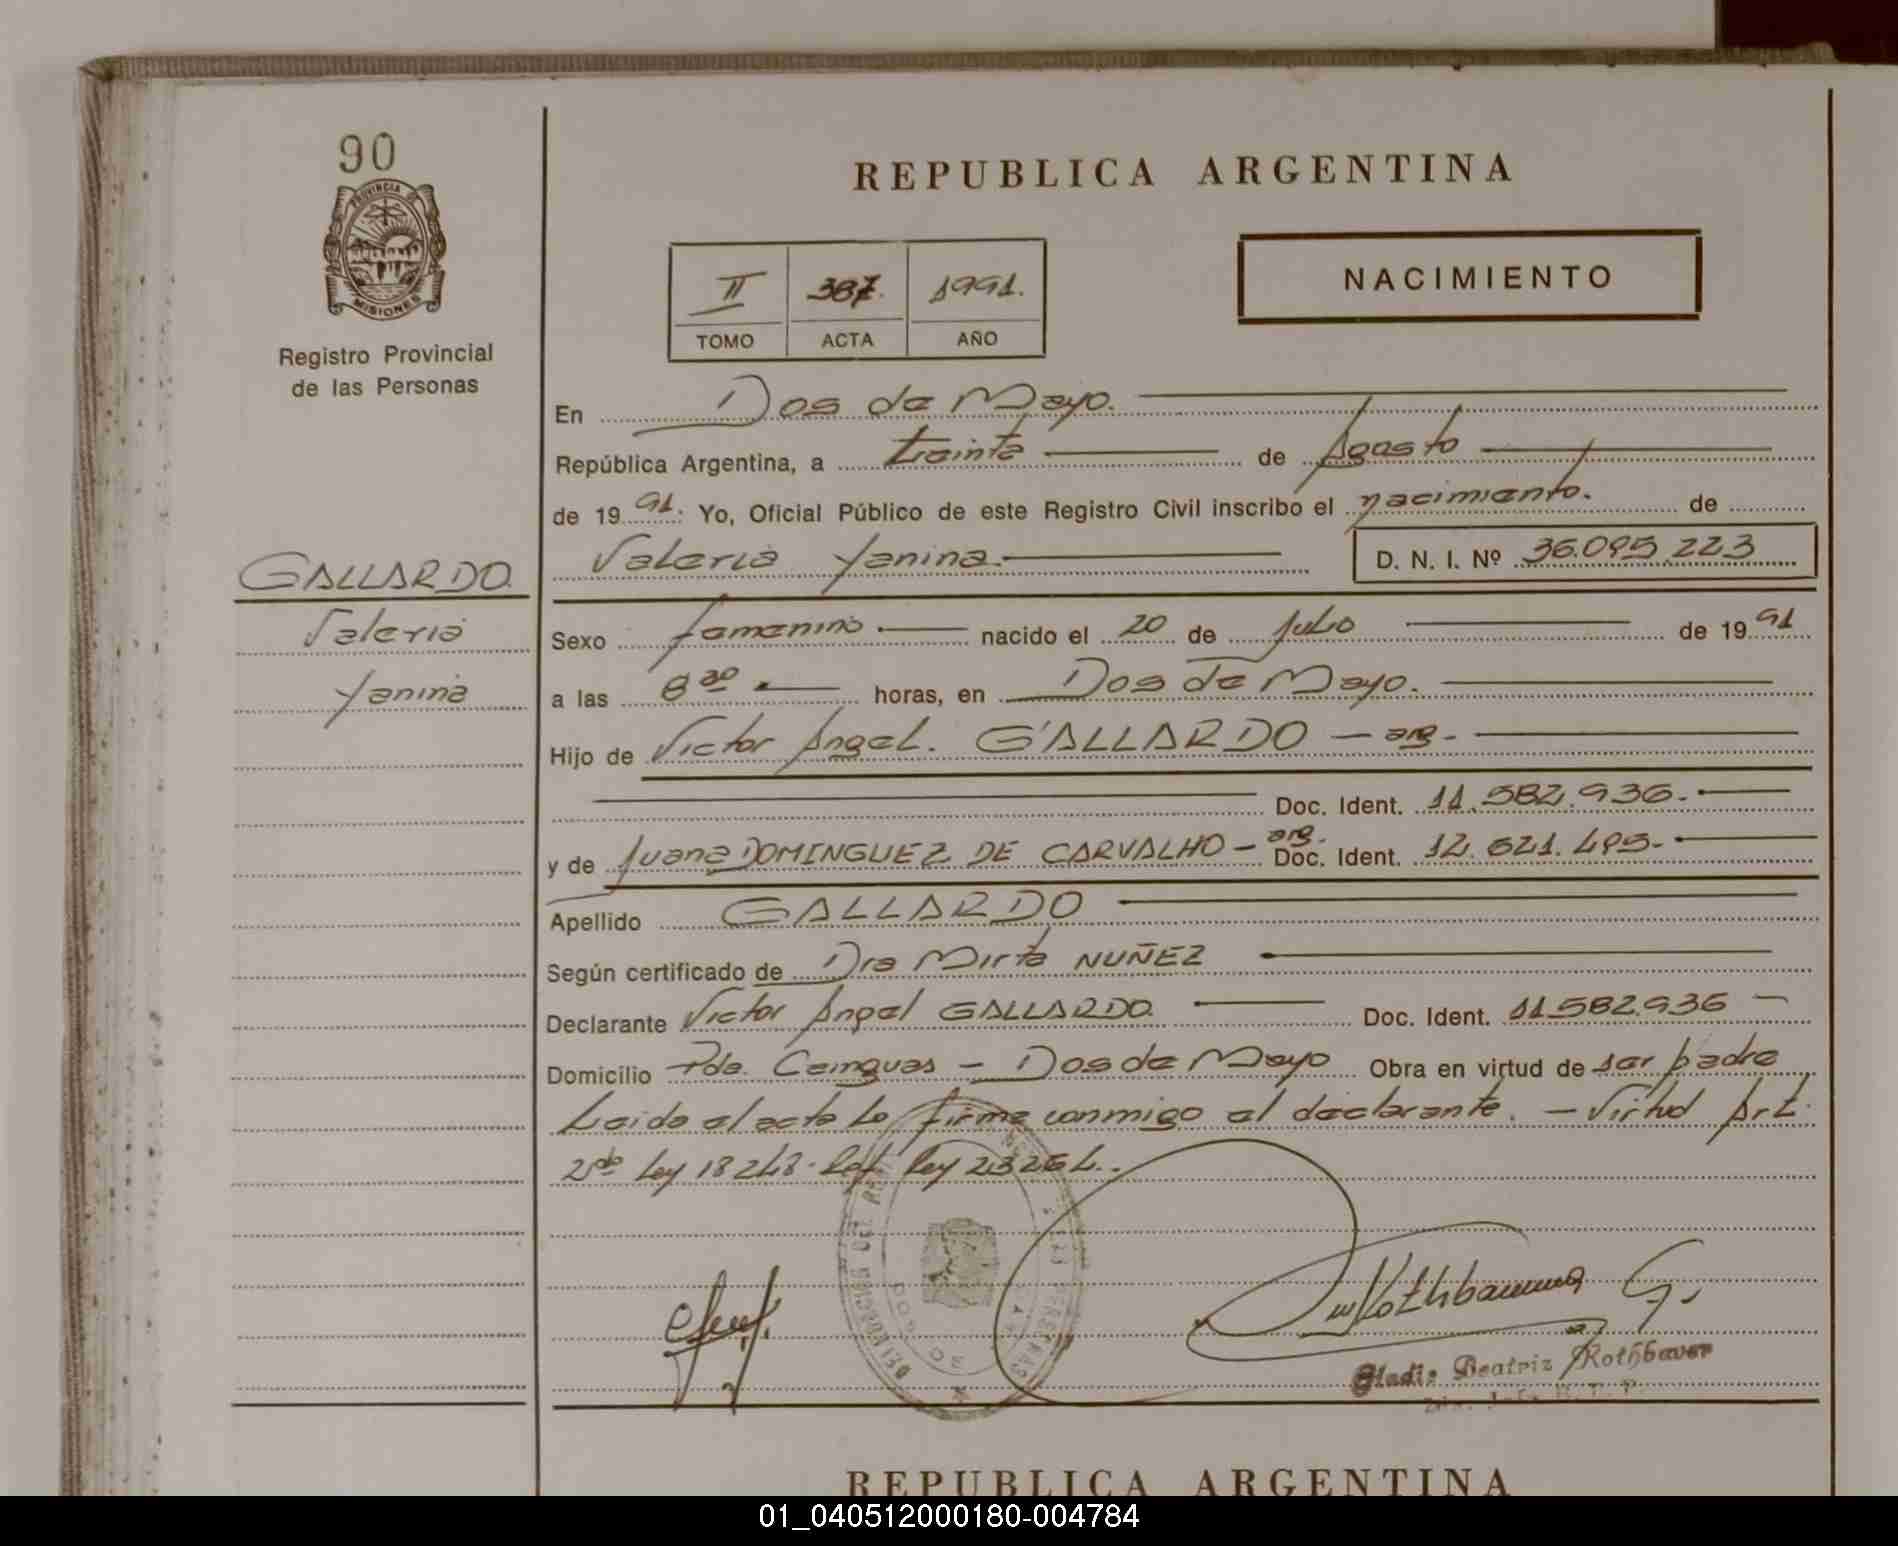 90
PROVINCIA DE
MISIONES
Registro Provincial
de las Personas
REPUBLICA ARGENTINA
II 387. 1991.
TOMO ACTA AÑO
NACIMIENTO
En Dos de Mayo.
República Argentina, a treinta de Agosto
de 1991. Yo, Oficial Público de este Registro Civil inscribo el nacimiento. de
Valeria Yanina. D. N. I. Nº 36.095.223
GALLARDO.
Valeria
Yanina
Sexo femenino nacido el 20 de Julio de 1991
a las 8 30 horas, en Dos de Mayo.
Hijo de Victor Angel. GALLARDO - arg.
Doc. Ident. 11.582.936.-
y de Juana DOMINGUEZ DE CARVALHO - arg. Doc. Ident. 12.621.495.-
Apellido GALLARDO
Según certificado de Dra Mirta NUÑEZ
Declarante Victor Angel GALLARDO Doc. Ident. 11.582.936
Domicilio Pdo. Cainguas - Dos de Mayo Obra en virtud de ser padre
Leida el acta la firma conmigo el declarante. - Virtud Art.
2do Ley 18248. Ley 23264.
Rothbauer G.
Gladis Beatriz Rothbauer
REPUBLICA ARGENTINA
01_040512000180-004784